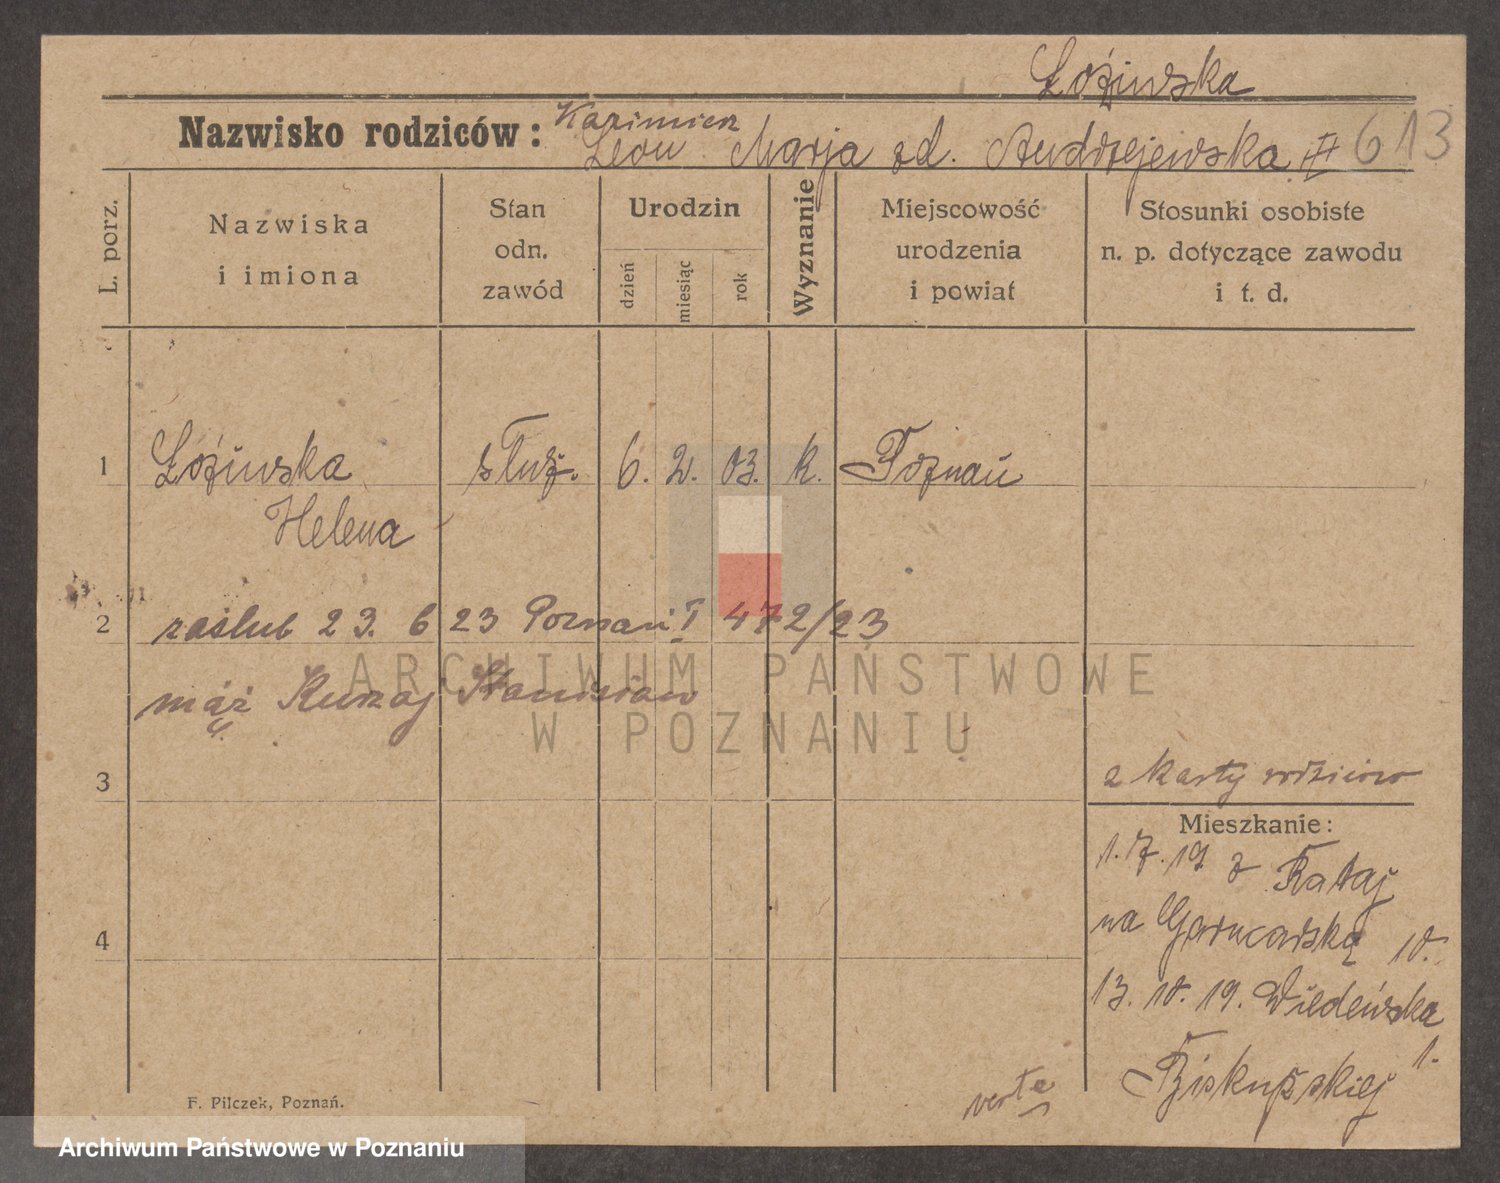 Łoźińska
Nazwisko rodziców: Kazimierz
Leon Marja zd. Andrzejewska 613
L. porz.
Nazwiska
i imiona
Stan
odn.
zawód
Urodzin
dzień
miesiąc
rok
Wyznanie
Miejscowość
urodzenia
i powiat
Stosunki osobiste
n. p. dotyczące zawodu
i t. d.
1 Łoźińska służ. 6. 2. 03. k. Poznań
Helena
2 zaślub 23. 6 23 Poznań I 472/23
mąż Kurzaj Stanisław
3
z karty rodziców
Mieszkanie:
1.7.19 z Rataj
na Garncarską 10.
4
13. 10. 19. Wiedeńska
1.
Biskupskiej
verte
F. Pilczek, Poznań.
ARCHIWUM PAŃSTWOWE
W POZNANIU
Archiwum Państwowe w Poznaniu